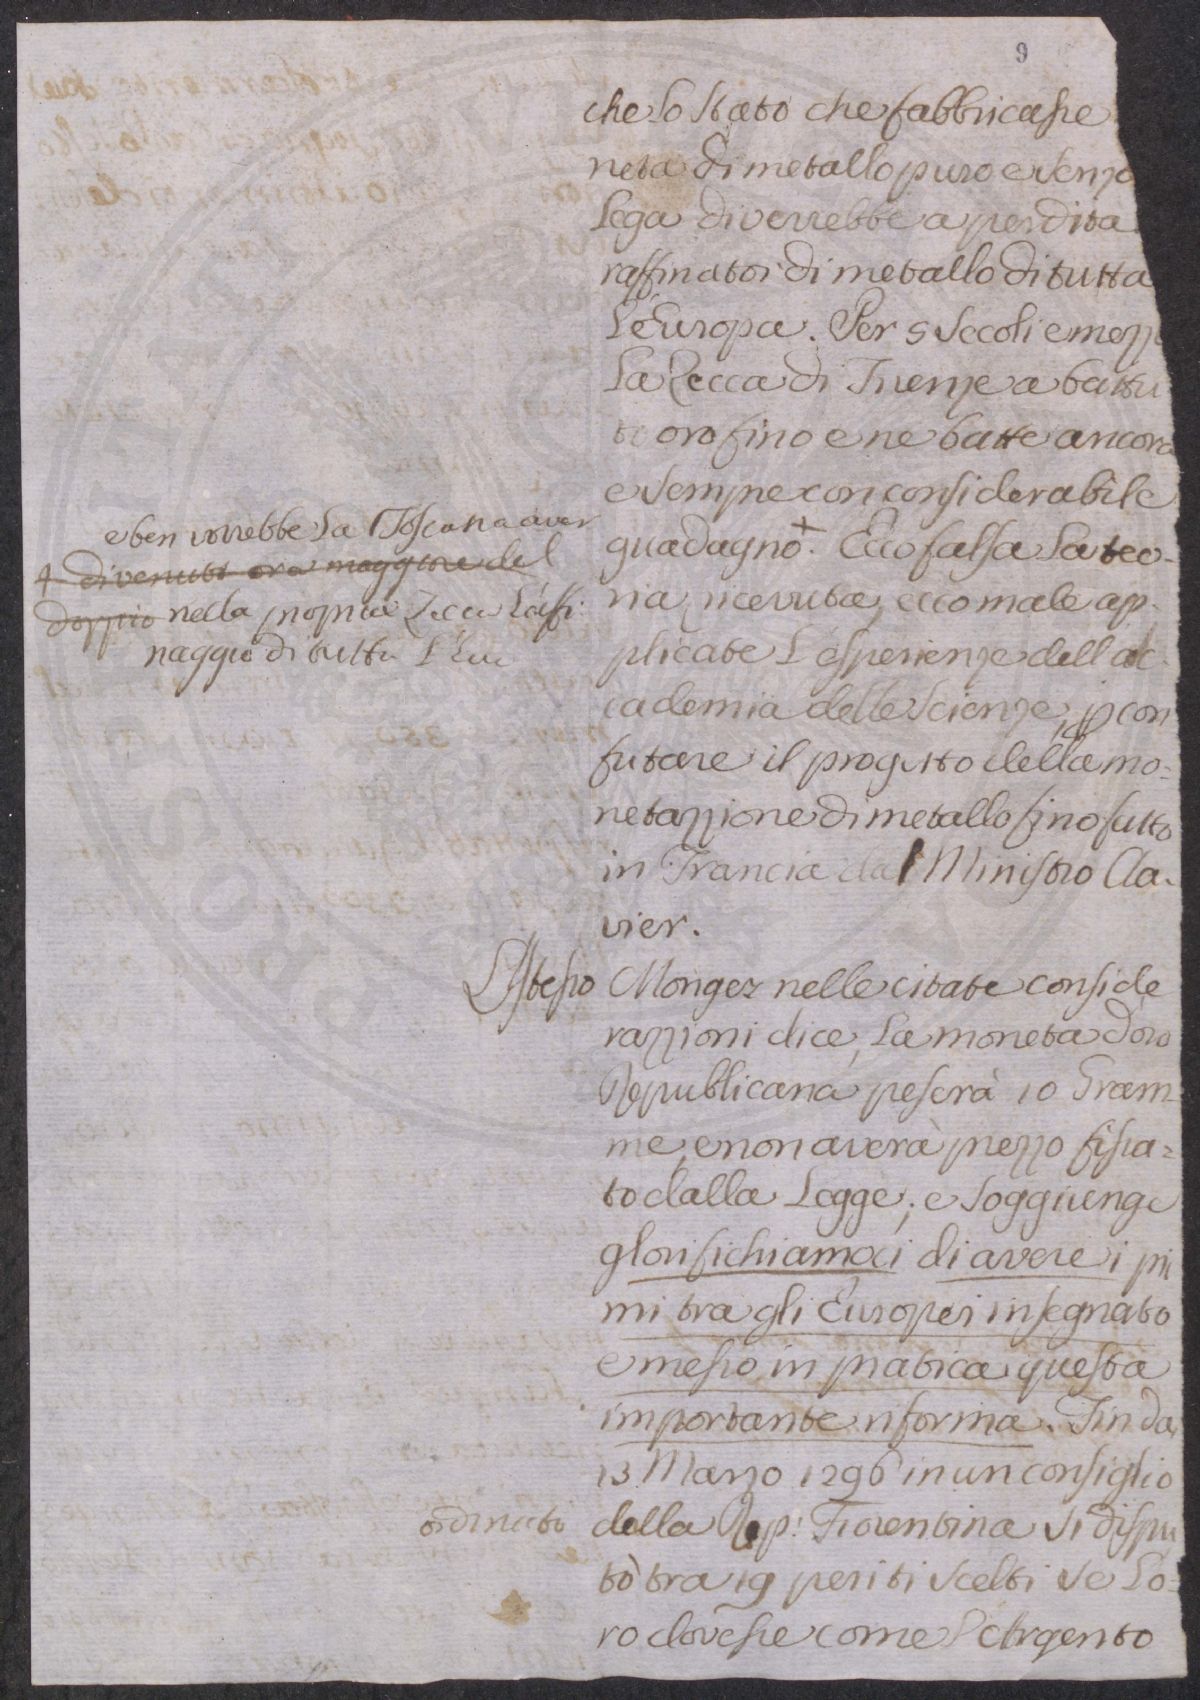 9
che lo Stato che fabbricasse
neta di metallo puro e senza
Lega diverrebbe a perdita
raffinatoi di metallo di tutta
L'Europa. Per 5 secoli e mezzo
La Zecca di Firenze a battu
to oro fino e ne batte ancora
e sempre con considerabile
guadagno+. Ecco falsa la teo-
ria ricevuta, ecco male ap-
plicate L'esperienze dell'ac-
cademia delle Scienze, p con
futare il progetto della mo=
netazzione di metallo fino fatto
in Francia dal Ministro Cla-
vier.
e ben vorrebbe La Toscana aver
+ divenuto ora maggiore del
doppio nella propria Zecca L'affi:
naggio di tutta L'Eu
L'Istesso Mongez nelle citate conside
razzioni dice, La moneta d'oro
Republicana peserà 10 Gram-
me, e non averà prezzo fissa=
to dalla Legge; e soggiunge
glorifichiamoci di avere i pri
mi tra gli Europei insegnato
e messo in pratica questa
importante riforma. Fin da
13 Marzo 1296 in un consiglio
ordinato
della Rep: Fiorentina si dispu
tò tra 19 periti scelti se Lo=
ro dovesse come L'Argento